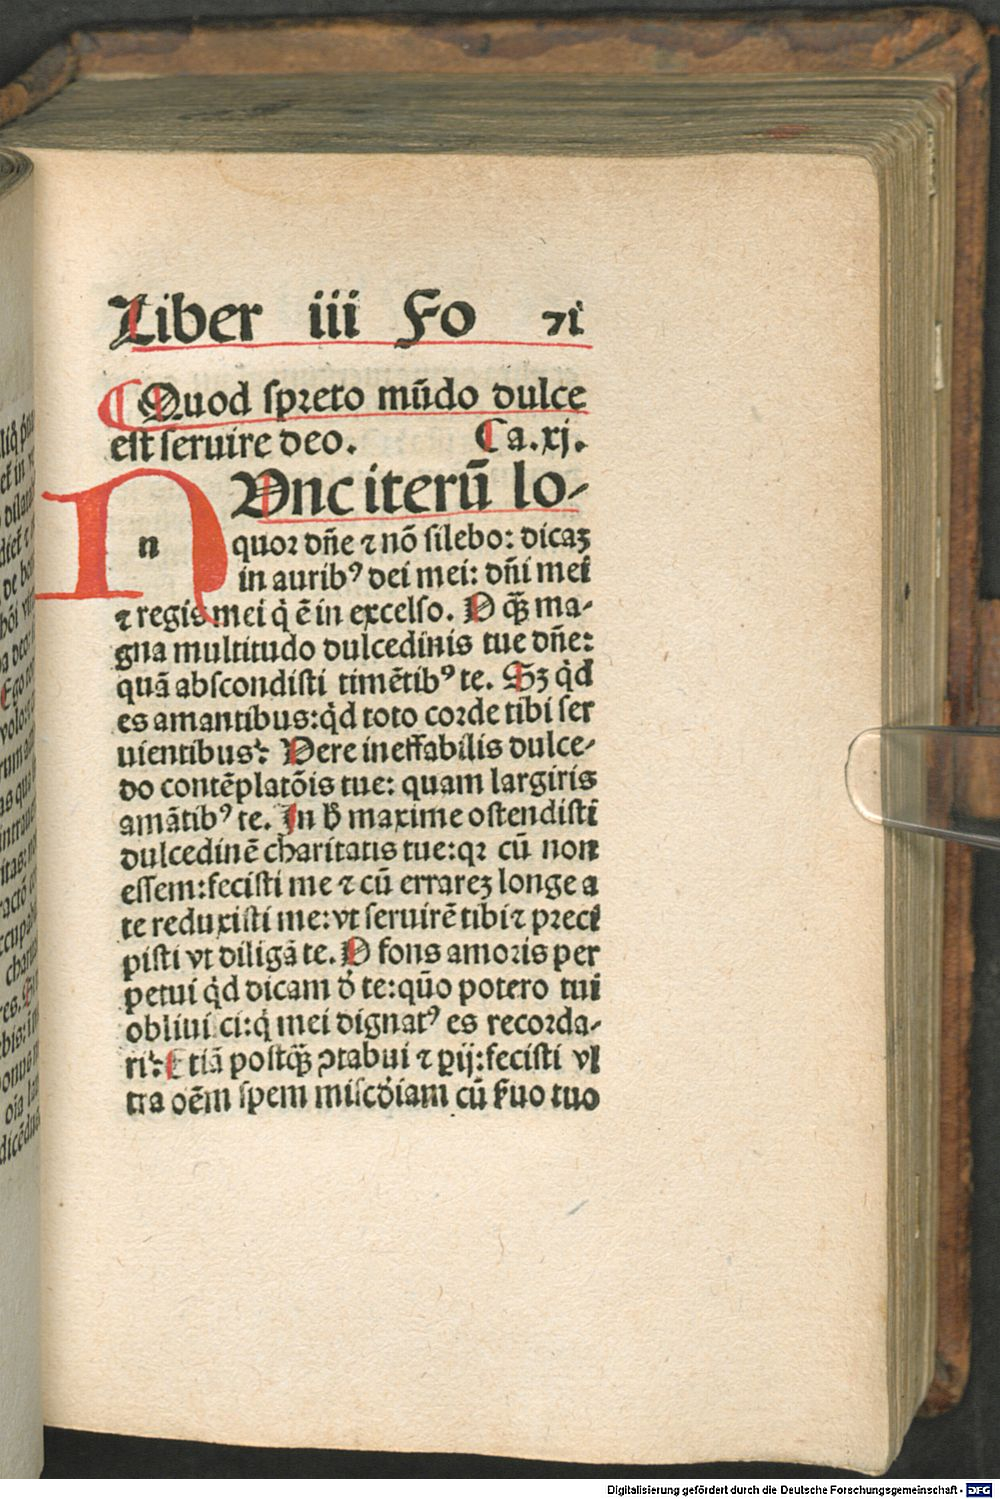 Liber iii Fo 71
Quod spreto mūdo dulce
est seruire deo. Ca.xj.
n Vnc iterū lo-
quor dñe ⁊ nō silebo: dicaꝫ
in auribꝰ dei mei: dñi mei
⁊ regis mei q̇ ē in excelso. O q̄ꝫ ma-
gna multitudo dulcedinis tue dñe:
quā abscondisti timētibꝰ te. Sꝫ q̇d
es amantibus: q̇d toto corde tibi ser
uientibus? Vere ineffabilis dulce-
do contēplatōis tue: quam largiris
amātibꝰ te. In h̄ maxime ostendisti
dulcedinē charitatis tue: qꝛ cū non
essem: fecisti me ⁊ cū errareꝫ longe a
te reduxisti me: vt seruirē tibi ⁊ preci
pisti vt diligā te. O fons amoris per
petui q̇d dicam d̓ te: quō potero tui
obliuisci: q̇ mei dignatꝰ es recorda-
ri? Etiā postq̄ꝫ ꝯtabui ⁊ ꝑij: fecisti vl
tra oēm spem misc̓diam cū ẜuo tuo
Digitalisierung gefördert durch die Deutsche Forschungsgemeinschaft - DFG